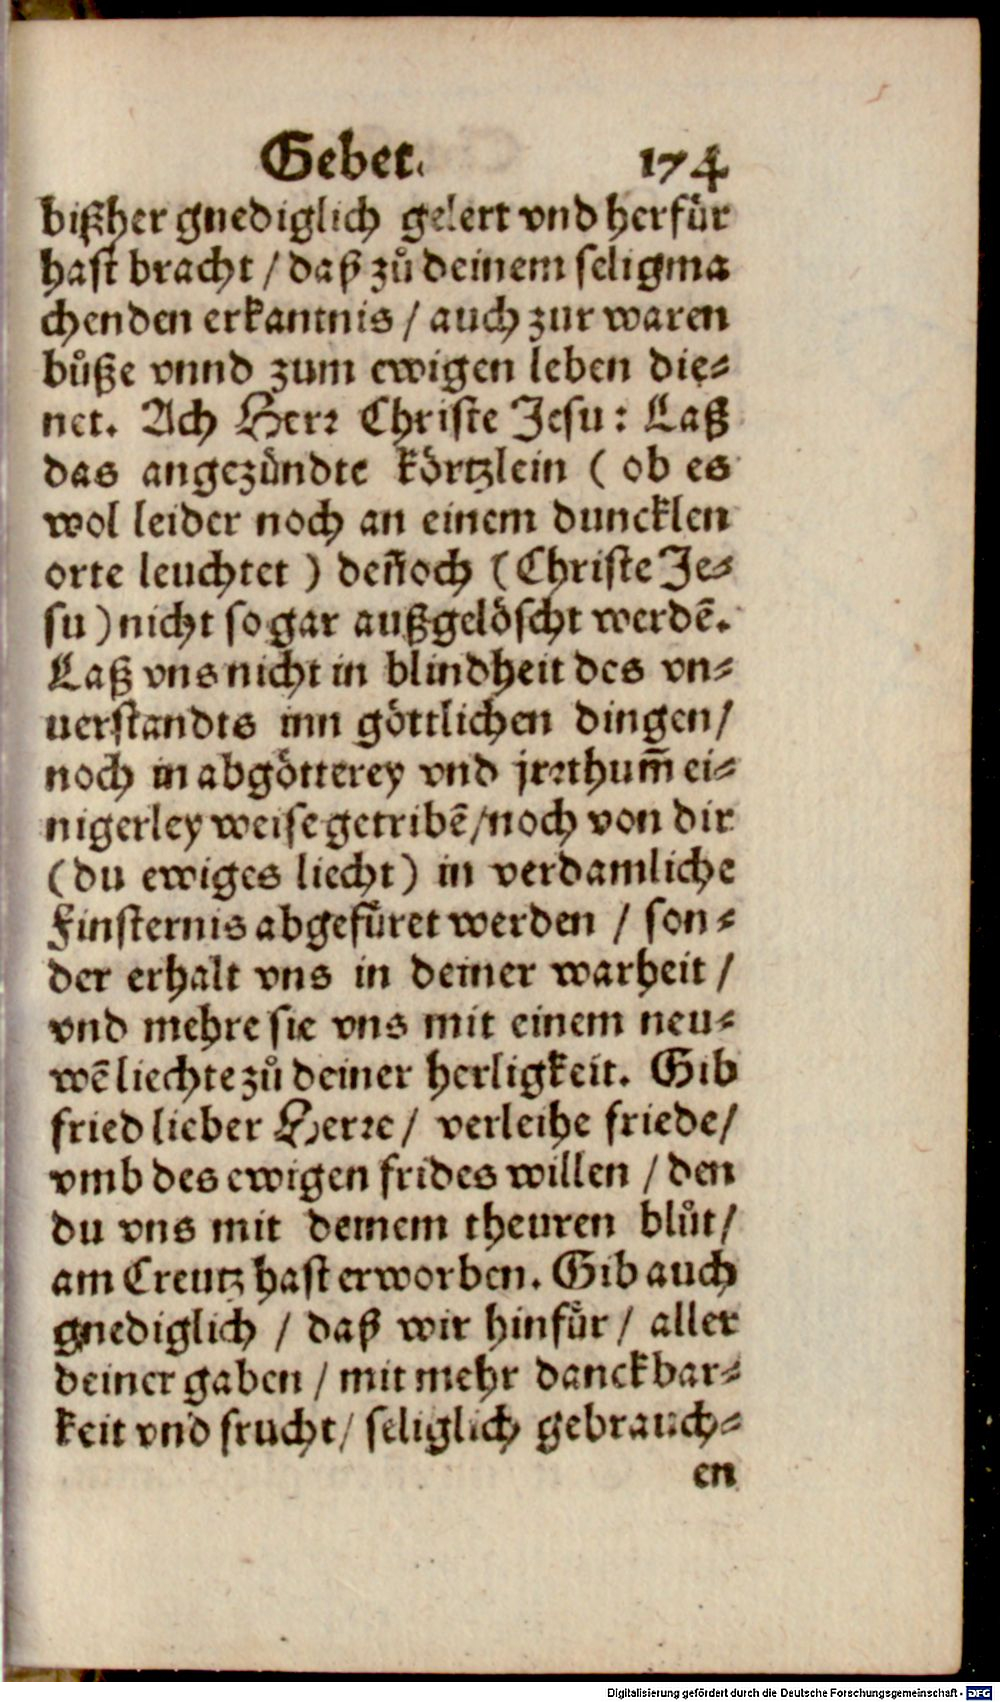 Gebet. 174
bißher gnediglich gelert vnd herfür
hast bracht / daß zů deinem seligma
chenden erkantnis / auch zur waren
bůße vnnd zum ewigen leben die⸗
net. Ach Herꝛ Christe Jesu: Laß
das angezündte körtzlein ( ob es
wol leider noch an einem duncklen
orte leuchtet ) deñoch (Christe Je⸗
su) nicht so gar außgelöscht werdẽ.
Laß vns nicht in blindheit des vn⸗
uerstandts inn göttlichen dingen/
noch in abgötterey vnd jrꝛthum̃ ei⸗
nigerley weise getribẽ/noch von dir
(du ewiges liecht) in verdamliche
Finsternis abgefüret werden / son⸗
der erhalt vns in deiner warheit /
vnd mehre sie vns mit einem neu⸗
wẽ liechte zů deiner herligkeit. Gib
fried lieber Herꝛe/ verleihe friede/
vmb des ewigen frides willen / den
du vns mit deinem theuren blůt/
am Creutz hast erworben. Gib auch
gnediglich / daß wir hinfür / aller
deiner gaben / mit mehr danckbar⸗
keit vnd frucht/ seliglich gebrauch⸗
en
Digitalisierung gefördert durch die Deutsche Forschungsgemeinschaft - DFG